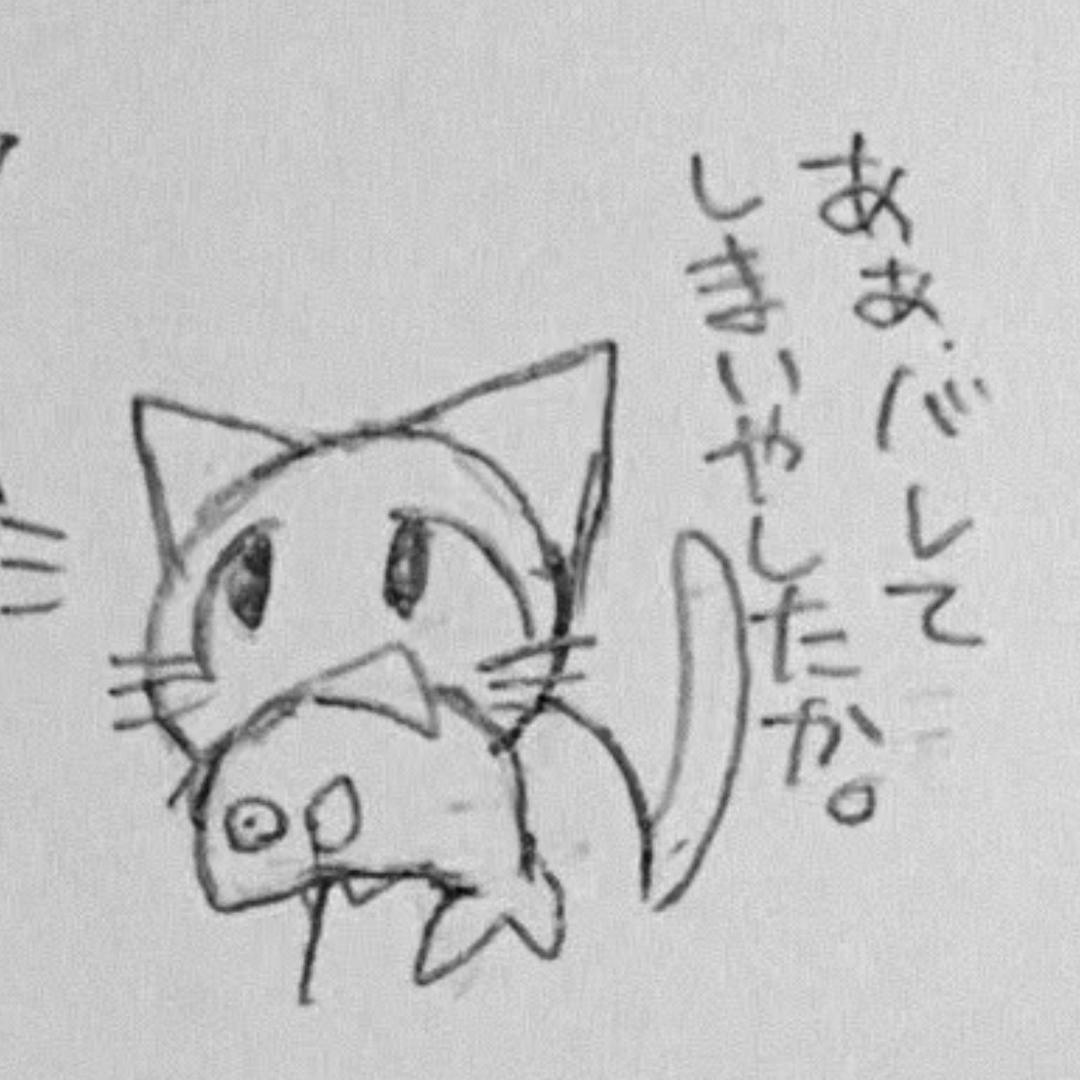 ああ、バレて
しまいやしたか。